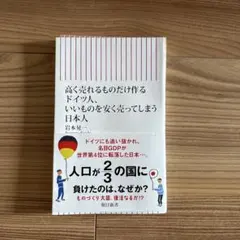 高く売れるものだけ作る
ドイツ人、
いいものを安く売ってしまう
日本人
岩本晃一
ドイツにも追い抜かれ、
名目GDPが
世界第4位に転落した日本…
人口が2/3の国に
負けたのは、なぜか?
ものづくり大国、復活なるか!?
朝日新書